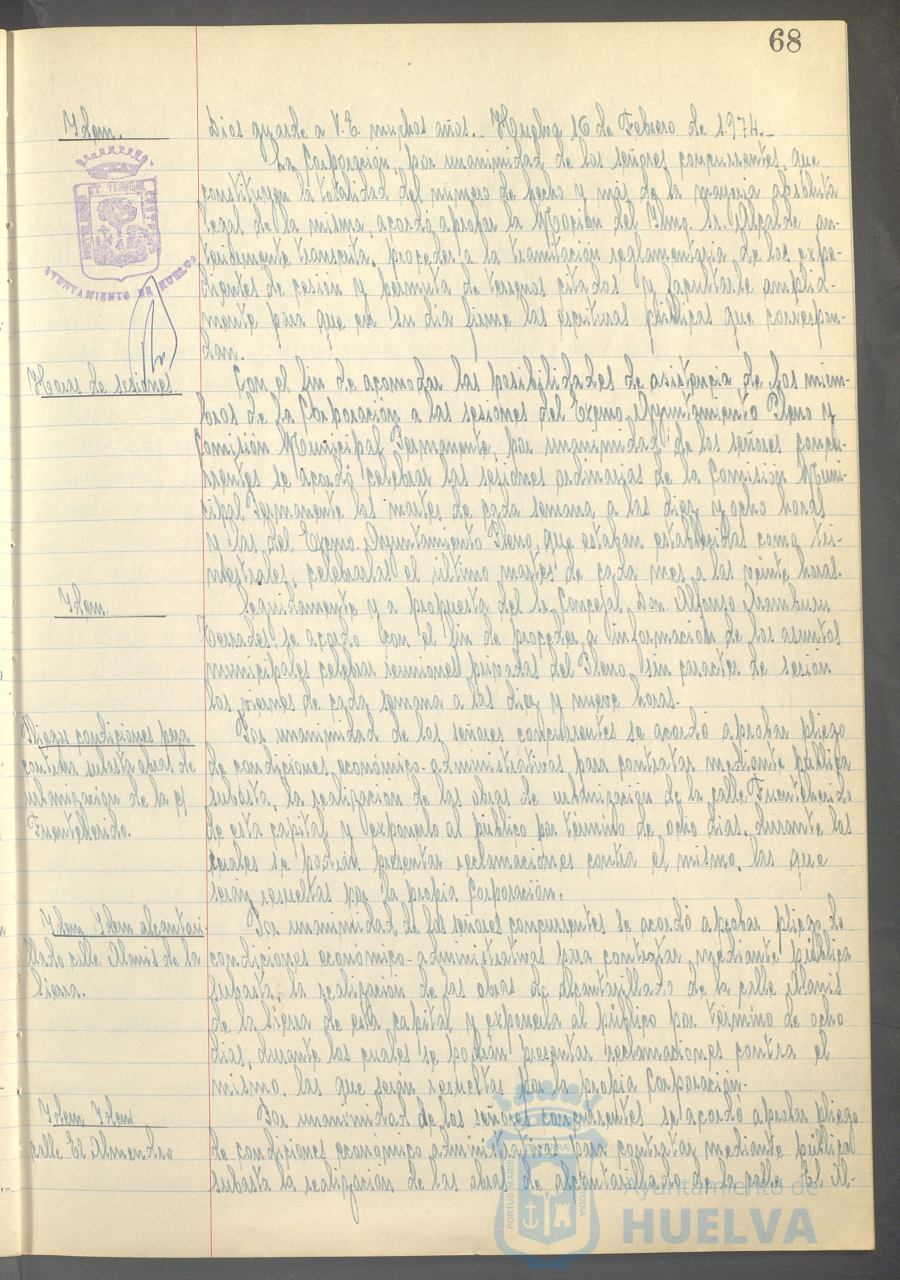 68
Idem.
Dios guarde a V.E. muchos años.- Huelva 16 de Febrero de 1.974.-
La Corporación, por unanimidad de los señores concurrentes, que
constituyen la totalidad del número de hecho y más de la mayoría absoluta
legal de la misma, acordó aprobar la Moción del Iltmo. Sr. Alcalde an-
teriormente transcrita, proceder a la tramitación reglamentaria de los expe-
dientes de cesión y permuta de terrenos citados y facultarle amplia-
mente para que en su día firme las escrituras públicas que correspon-
dan.
AYUNTAMIENTO DE HUELVA
Horas de sesiones.
Con el fin de acomodar las posibilidades de asistencia de los miem-
bros de la Corporación a las sesiones del Excmo. Ayuntamiento Pleno y
Comisión Municipal Permanente, por unanimidad de los señores concu-
rrentes se acordó celebrar las sesiones ordinarias de la Comisión Muni-
cipal Permanente los martes de cada semana a las diez y ocho horas
y las del Excmo. Ayuntamiento Pleno, que estaban establecidas como tri-
mestrales, celebrarlas el último martes de cada mes a las veinte horas.
Idem.
Seguidamente y a propuesta del Sr. Concejal Don Alfonso Aramburu
Terrades, se acordó con el fin de proceder a información de los asuntos
municipales celebrar reuniones privadas del Pleno, sin caracter de sesión
los viernes de cada semana a las diez y nueve horas.
Pliegos condiciones para
contratar subasta obras de
urbanización de la c/
Fuenteheridos.
Por unanimidad de los señores concurrentes se acordó aprobar pliego
de condiciones económico-administrativas para contratar mediante pública
subasta, la realización de las obras de urbanización de la calle Fuenteheridos
de esta capital y exponerlo al público por término de ocho días, durante los
cuales se podrán presentar reclamaciones contra el mismo, las que
serán resueltas por la propia Corporación.
Idem Idem alcantari-
llado calle Alanis de la
Sierra.
Por unanimidad de los señores concurrentes se acordó aprobar pliego de
condiciones económico-administrativas para contratar mediante pública
subasta, la realización de las obras de alcantarillado de la calle Alanis
de la Sierra de esta capital y exponerla al público por término de ocho
días, durante los cuales se podrán presentar reclamaciones contra el
mismo, las que serán resueltas por la propia Corporación.
Idem Idem
calle El Almendro
Por unanimidad de los señores concurrentes se acordó aprobar pliego
de condiciones económico administrativas para contratar mediante pública
subasta la realización de las obras de alcantarillado de la calle El Al-
PORTUS MARIS
CUSTODIA
Ayuntamiento de
HUELVA